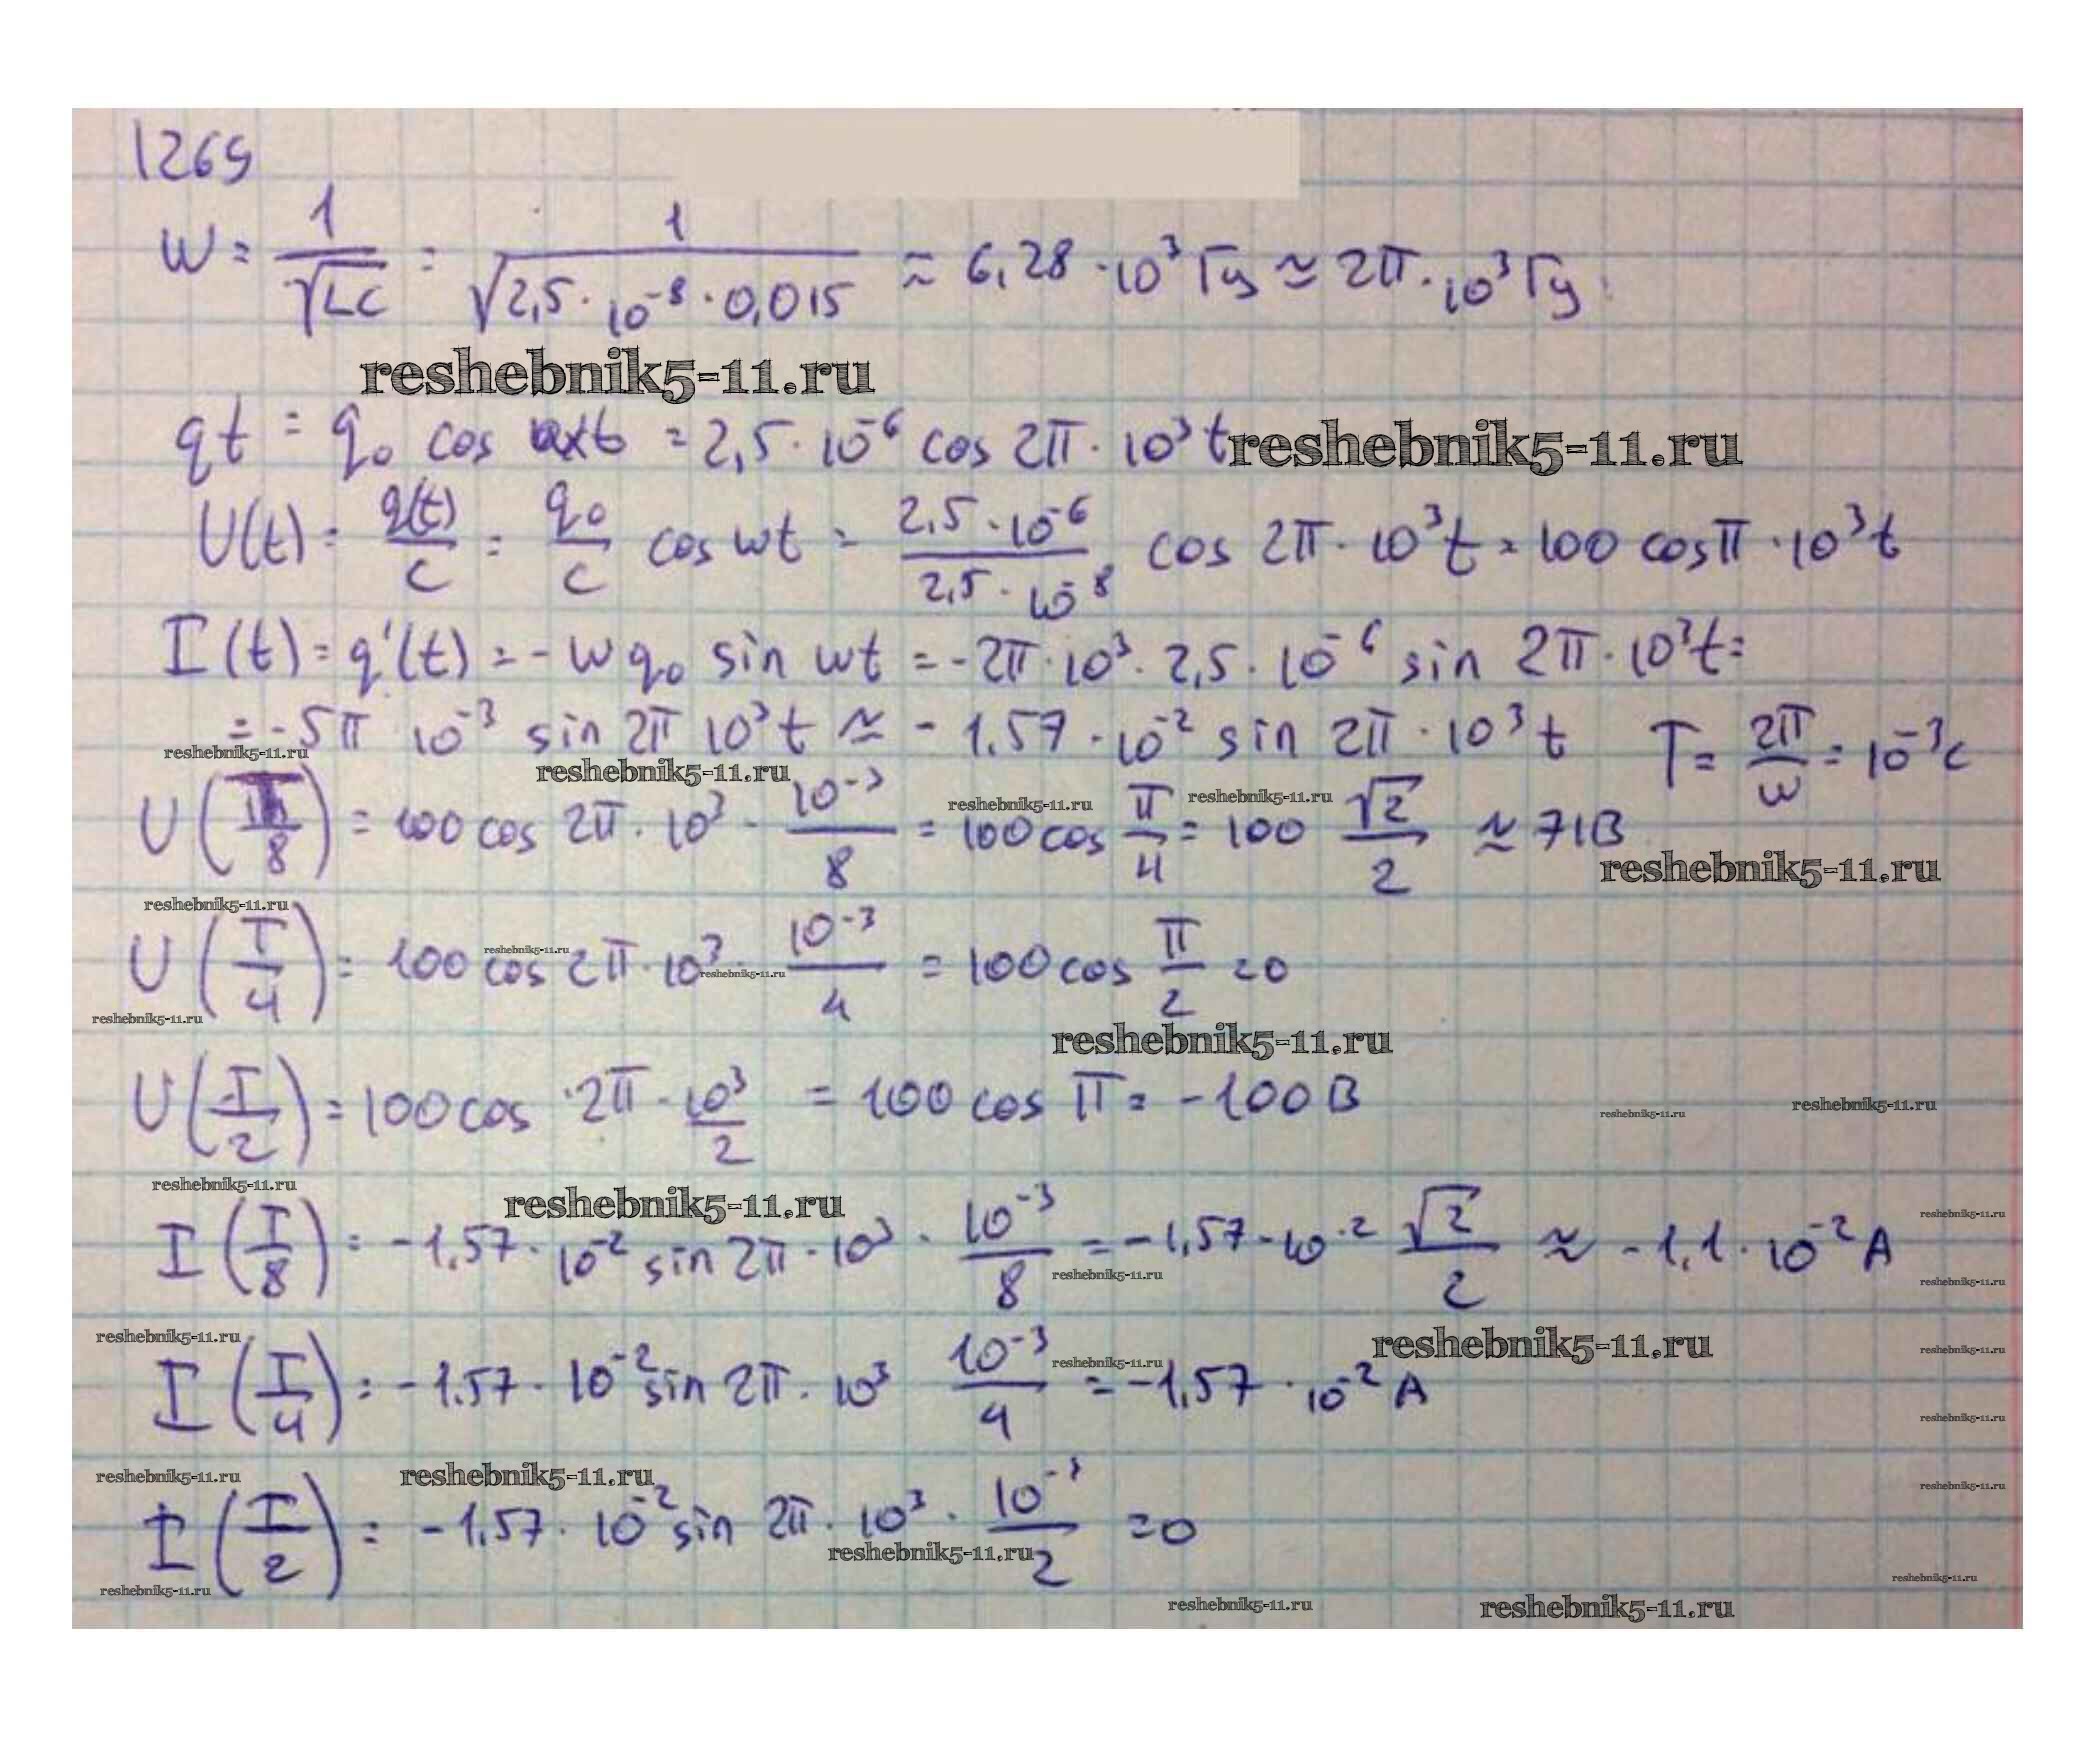 1269
W = 1/√LC = 1/√2,5·10⁻⁸·0,015 ≈ 6,28·10³ Гц ≈ 2π·10³ Гц
reshebnik5-11.ru
qt = q₀ cos = 2,5·10⁻⁶ cos 2π·10³ t reshebnik5-11.ru
U(t) = q(t)/c = q₀/c cos wt = 2,5·10⁻⁶/2,5·10⁻⁸ cos 2π·10³t = 100 cos π·10³t
I(t) = q'(t) = -W q₀ sin wt = -2π·10³·2,5·10⁻⁶ sin 2π·10³t =
= -5π 10⁻³ sin 2π 10³t ≈ -1.57·10⁻² sin 2π·10³t T = 2π/w = 10⁻³c
reshebnik5-11.ru reshebnik5-11.ru
reshebnik5-11.ru reshebnik5-11.ru
U(T/8) = 100 cos 2π·10³·10⁻³/8 = 100 cos π/4 = 100 √2/2 ≈ 71В
reshebnik5-11.ru
reshebnik5-11.ru
U(T/4) = 100 cos 2π·10³·10⁻³/4 = 100 cos π/2 = 0
reshebnik5-11.ru
reshebnik5-11.ru
reshebnik5-11.ru
reshebnik5-11.ru
U(T/2) = 100 cos ·2π·10³/2 = 100 cos π = -100 В
reshebnik5-11.ru reshebnik5-11.ru
reshebnik5-11.ru reshebnik5-11.ru
reshebnik5-11.ru
I(T/8) = -1,57·10⁻² sin 2π·10³·10⁻³/8 = -1,57·10⁻² √2/2 ≈ -1,1·10⁻² А
reshebnik5-11.ru reshebnik5-11.ru
reshebnik5-11.ru reshebnik5-11.ru reshebnik5-11.ru
reshebnik5-11.ru
I(T/4) = -1.57·10⁻² sin 2π·10³ 10⁻³/4 = -1,57·10⁻² А
reshebnik5-11.ru
reshebnik5-11.ru reshebnik5-11.ru reshebnik5-11.ru
I(T/2) = -1,57·10⁻² sin 2π·10³·10⁻³/2 = 0
reshebnik5-11.ru
reshebnik5-11.ru reshebnik5-11.ru
reshebnik5-11.ru reshebnik5-11.ru